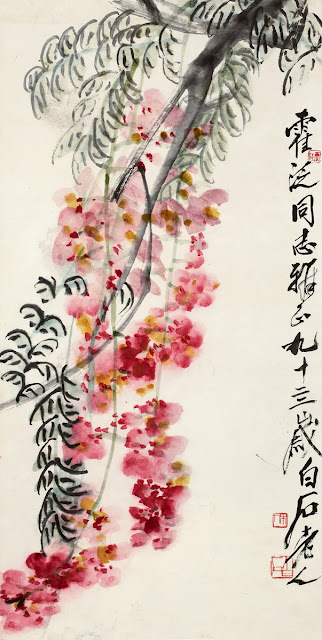 霍泛同志雅正九十三歲白石老人